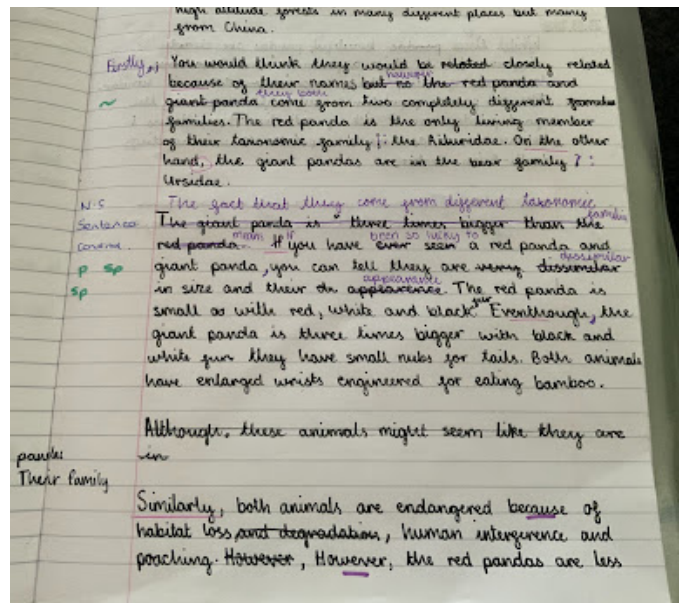 high altitude forests in many different places but mainly
from China.
Firstly, You would think they would be related closely related
because of their names but no the red panda and
however
they both
~ giant panda come from two completely different
families. The red panda is the only living member
of their taxonomic family: the Ailuridae. On the other
hand, the giant pandas are in the bear family:
Ursidae.
N.S The fact that they come from different taxonomic
families
Sentence The giant panda is three times bigger than the
comma red panda. If you have ever seen a red panda and
mean if been so lucky to
dissimilar
p sp giant panda, you can tell they are very dissimilar
appearance
sp in size and their appearence. The red panda is
small with red, white and black fur Eventhough, the
giant panda is three times bigger with black and
white fur they have small nubs for tails. Both animals
have enlarged wrists engineered for eating bamboo.
Although, these animals might seem like they are
in
Their family
Similarly, both animals are endangered because of
habitat loss, and degradation, human intergerence and
poaching. However, However, the red pandas are less